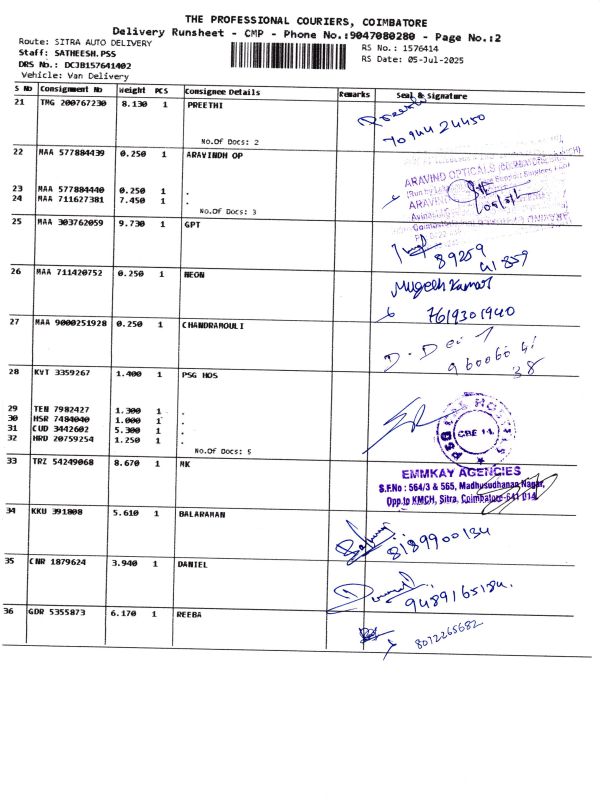 THE PROFESSIONAL COURIERS, COIMBATORE
Delivery Runsheet - CMP - Phone No.:9047080280 - Page No.:2
Route: SITRA AUTO DELIVERY
Staff: SATHEESH.PSS
DRS No.: DCJB157641402
Vehicle: Van Delivery
RS No.: 1576414
RS Date: 05-Jul-2025
S No Consignment No Weight PCS Consignee Details Remarks Seal & Signature
21 TMG 200767230 8.130 1 PREETHI
No.Of Docs: 2
Preethi
7094424450
22 MAA 577884439 0.250 1 ARAVINDH OP
23 MAA 577884440 0.250 1 .
24 MAA 711627381 7.450 1 .
No.Of Docs: 3
ARAVIND OPTICALS
25 MAA 303762059 9.730 1 GPT
89259
41859
26 MAA 711420752 0.250 1 NEON
Mugesh Kumar
7619301940
27 MAA 9000251928 0.250 1 CHANDRAMOULI
960060 41
38
28 KVT 3359267 1.400 1 PSG HOS
29 TEN 7982427 1.300 1 .
30 HSR 7484040 1.000 1 .
31 CUD 3442602 5.300 1 .
32 HRD 20759254 1.250 1 .
No.Of Docs: 5
CBE 14.
33 TRZ 54249068 8.670 1 MK
EMMKAY AGENCIES
S.F.No : 564/3 & 565, Madhusudhanan Nagar,
Opp.to KMCH, Sitra, Coimbatore-641 014.
34 KKU 391808 5.610 1 BALARAMAN
8189900134
35 CNR 1879624 3.940 1 DANIEL
9489165184.
36 GDR 5355873 6.170 1 REEBA
8072265682